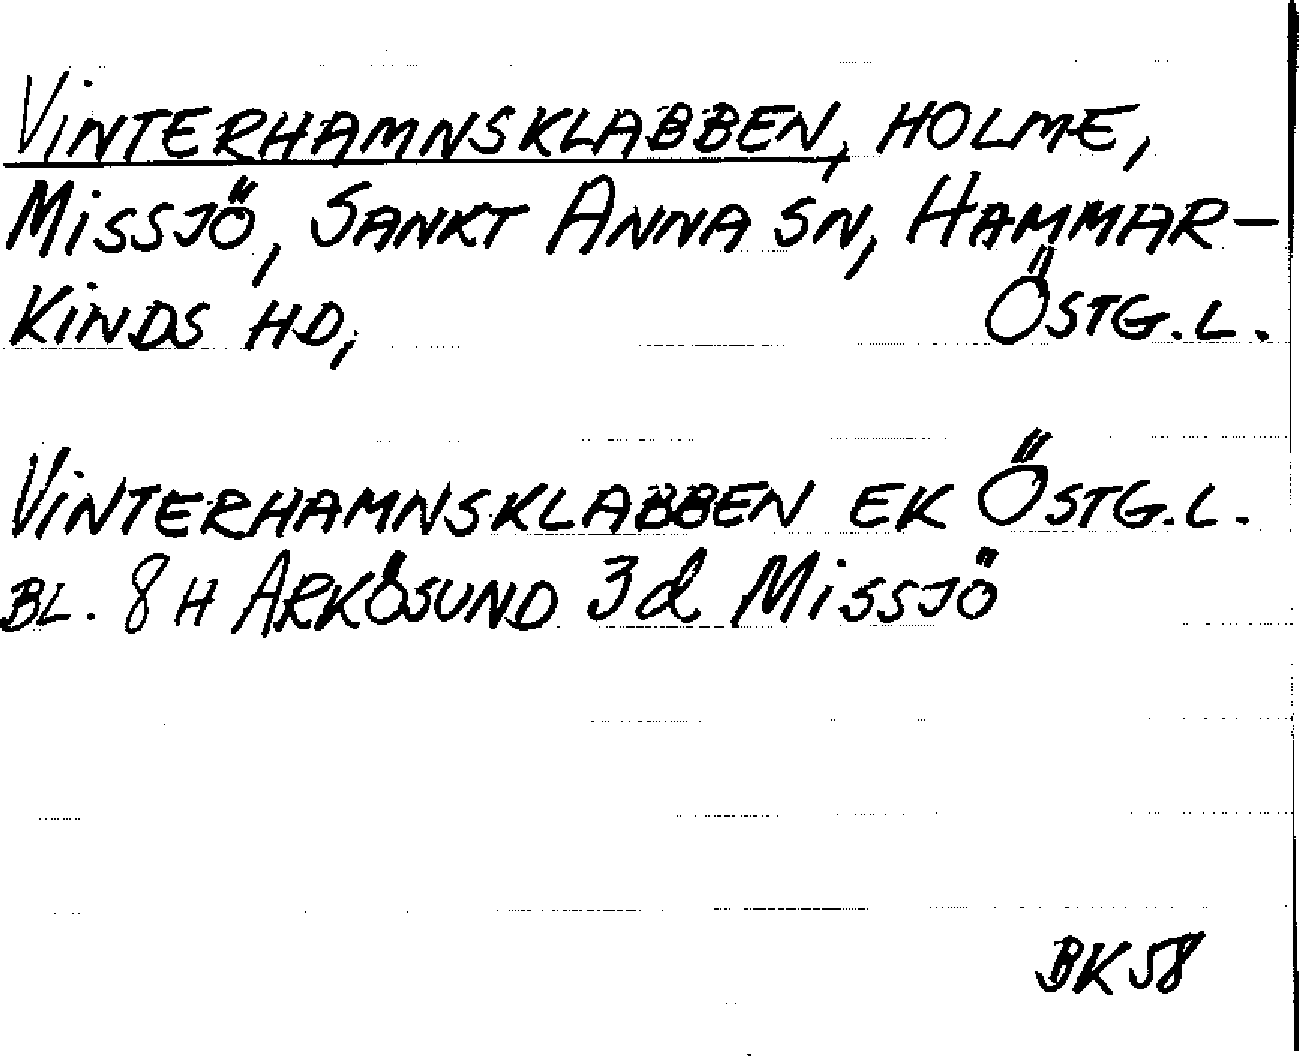 VINTERHAMNSKLABBEN, HOLME,
MISSJÖ, SANKT ANNA SN, HAMMAR-
KINDS HD, ÖSTG.L.
VINTERHAMNSKLABBEN EK ÖSTG.L.
BL. 8H ARKÖSUND 3d MISSJÖ
BK 58